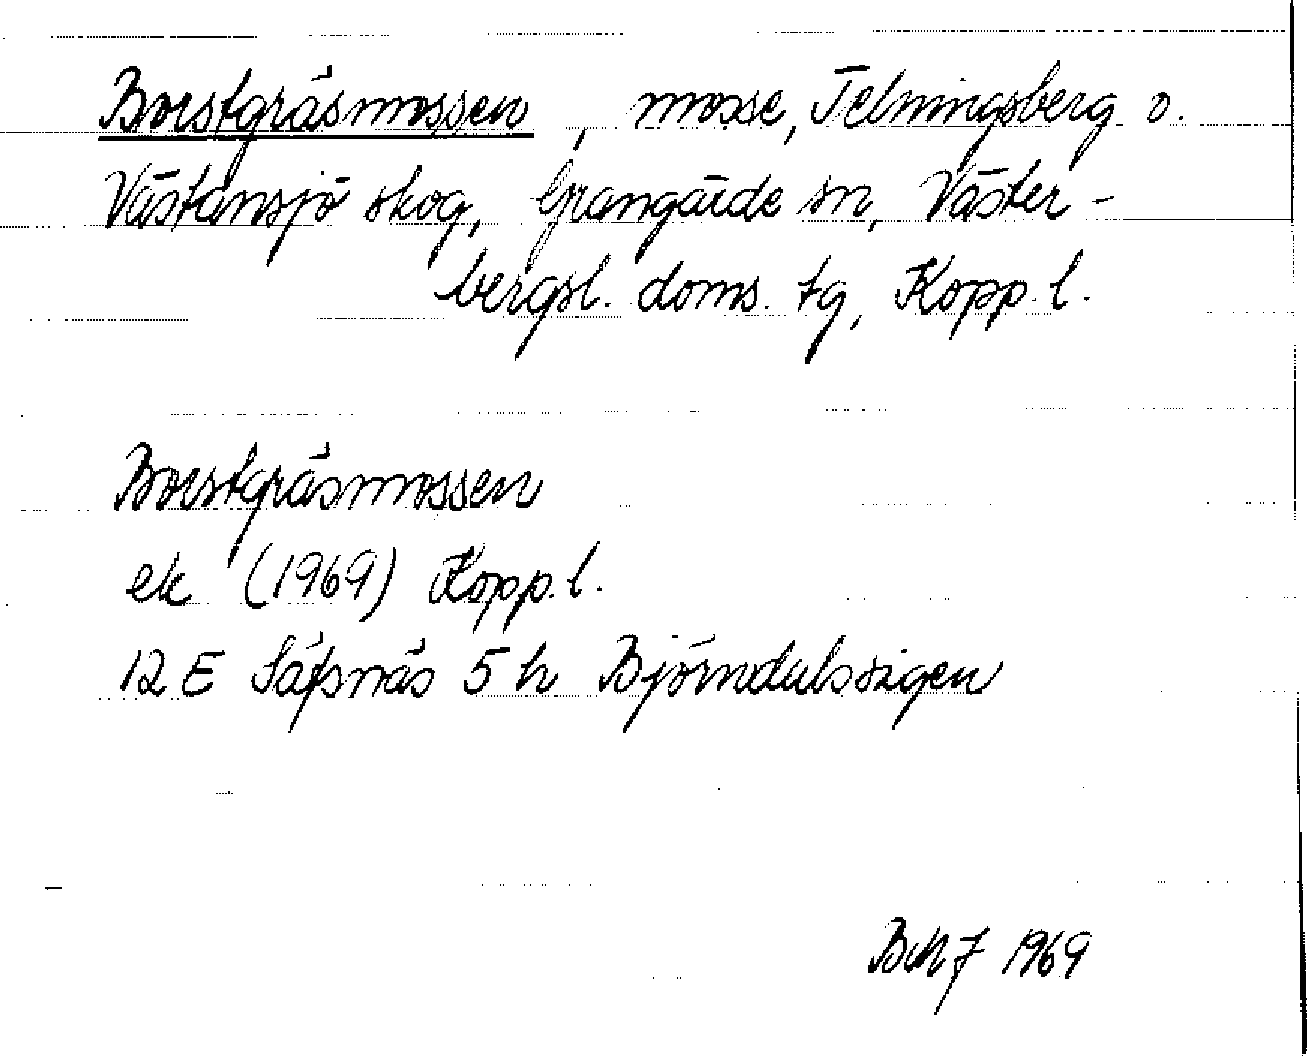 Borstgräsmossen, mosse, Telningsberg o.
Västansjö skog, Grangärde sn, Väster-
bergsl. doms. tg, Kopp. l.
Borstgräsmossen
ek (1969) Kopp. l.
12 E Säfsnäs 5 h Björndalssigen
1969